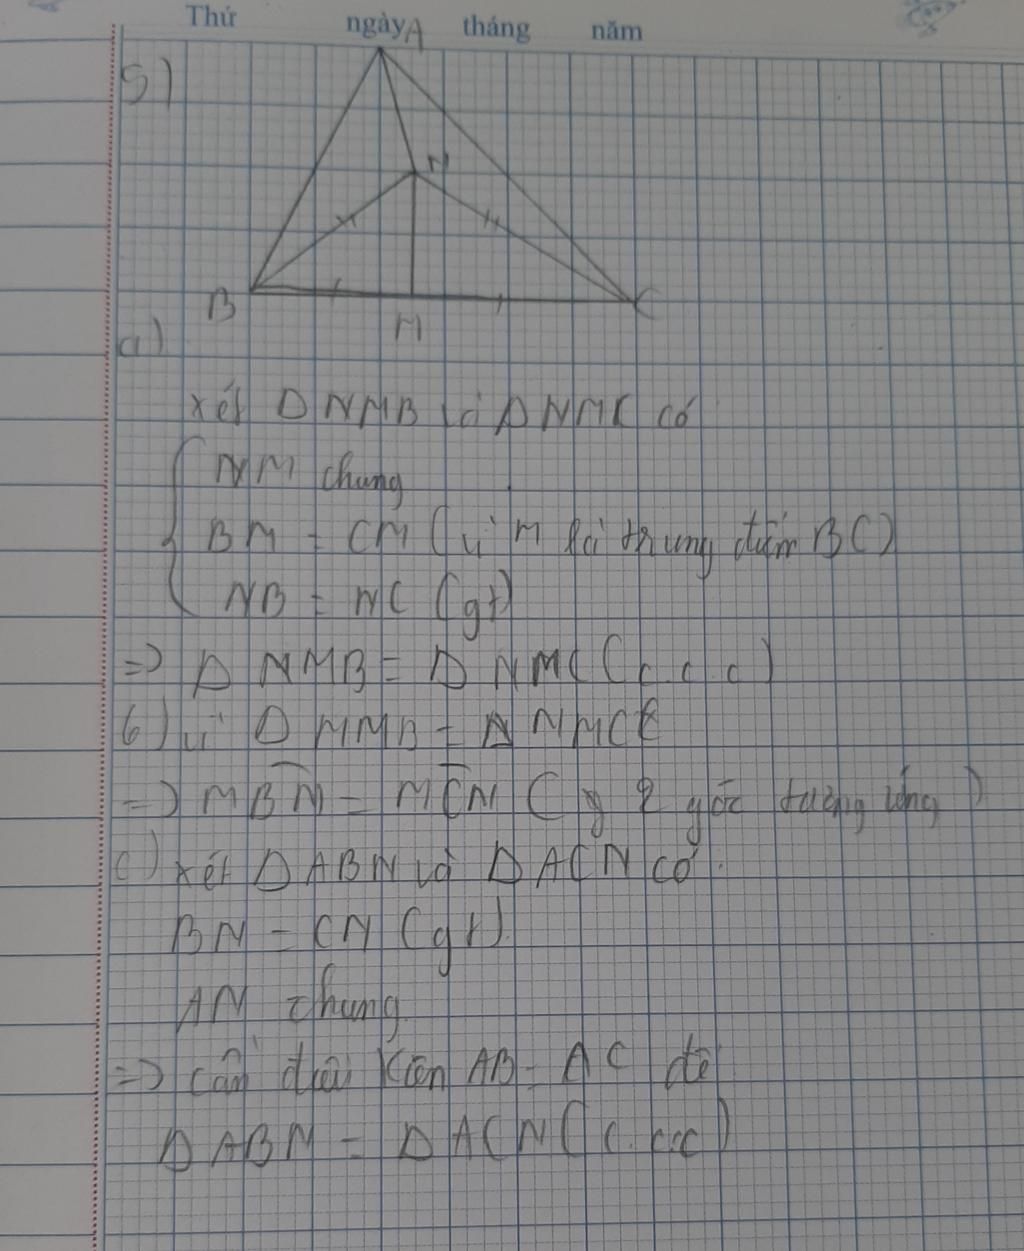 Thứ ngày tháng năm
A
5)
N
B
C
M
a)
xét Δ NMB và Δ NMC có
NM chung
BM = CM (vì M là trung điểm BC)
NB = NC (gt)
=> Δ NMB = Δ NMC (c.c.c)
b) vì Δ MMB = Δ NMC
=> MBN = MCN ( 2 góc tương ứng)
c) xét Δ ABN và Δ ACN có:
BN = CN (gt)
AN chung
=> cần điều kiện AB = AC để
Δ ABN = Δ ACN (c.c.c)